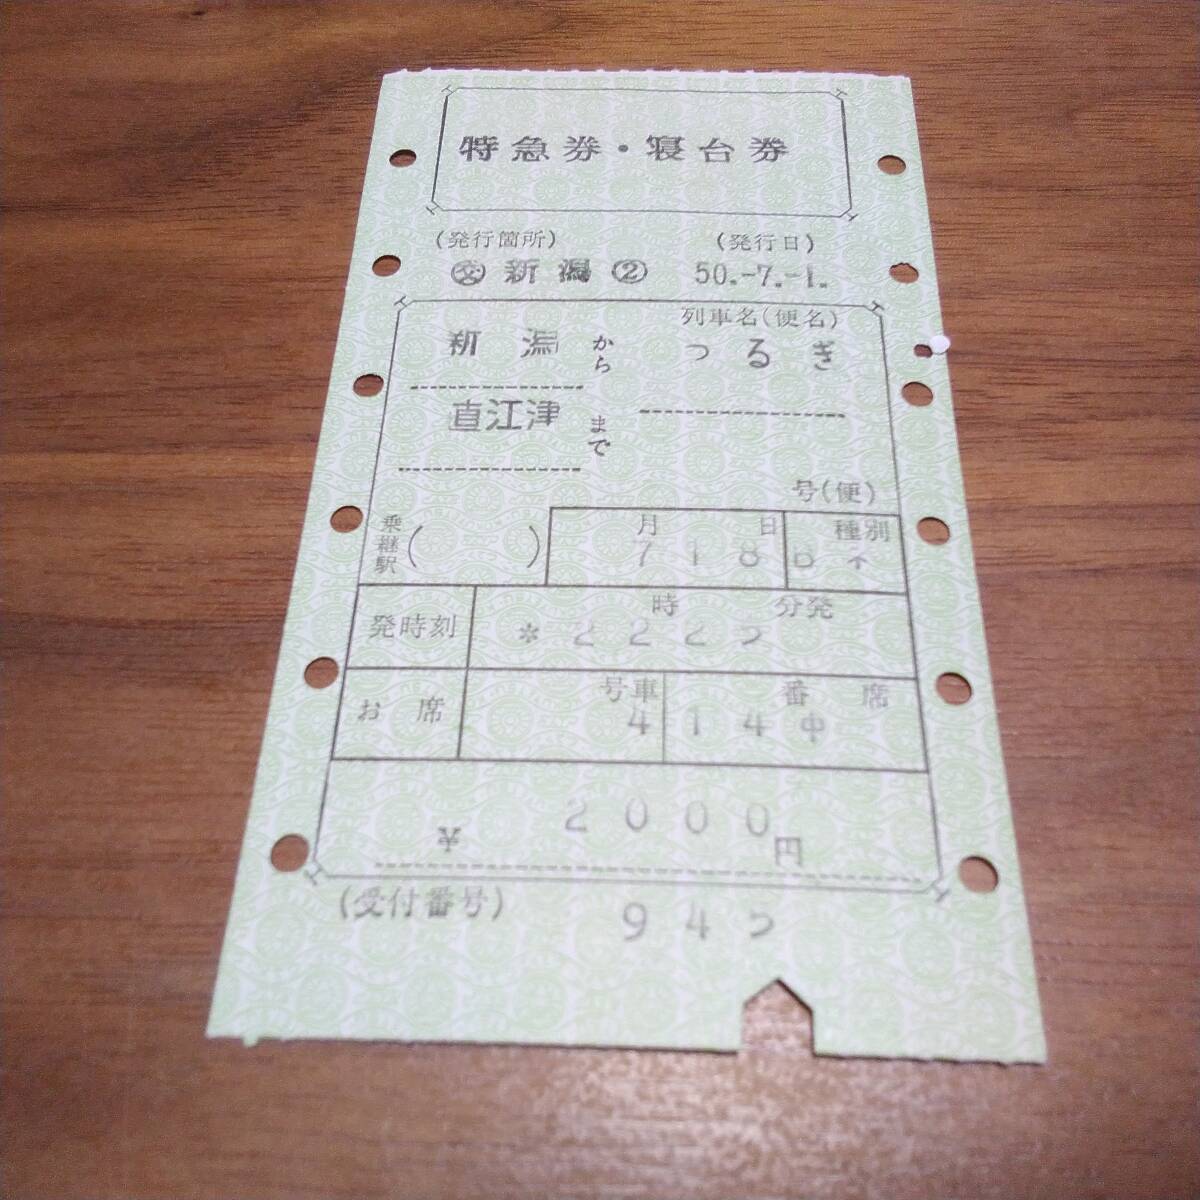 特急券・寝台券
(発行箇所) (発行日)
㊋新潟② 50.-7.-1.
列車名(便名)
新潟から つるぎ
直江津まで
号(便)
乗継駅( ) 月 日 種別
7 18 B
発時刻 時 分発
*222
お席 号車 番 席
4 14中
¥ 2000円
(受付番号) 94